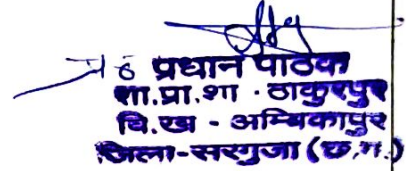 प्रधान पाठक
शा.प्रा.शा. ठाकुरपुर
वि.ख - अम्बिकापुर
जिला-सरगुजा (छ.ग.)